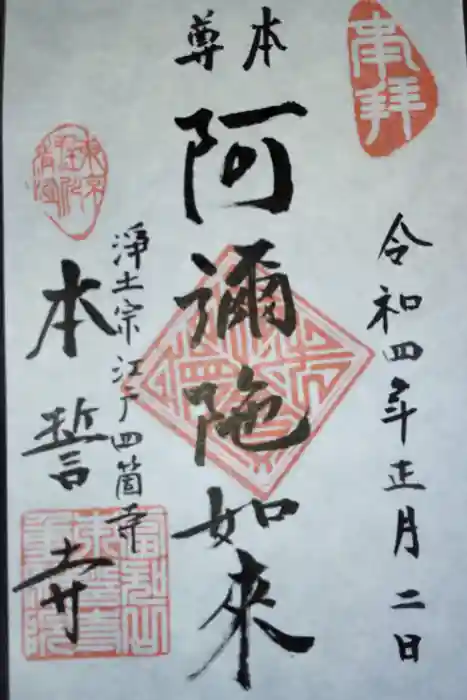 奉拝
令和四年正月二日
本尊
阿彌陀如来
浄土宗江戸四箇寺
本誓寺